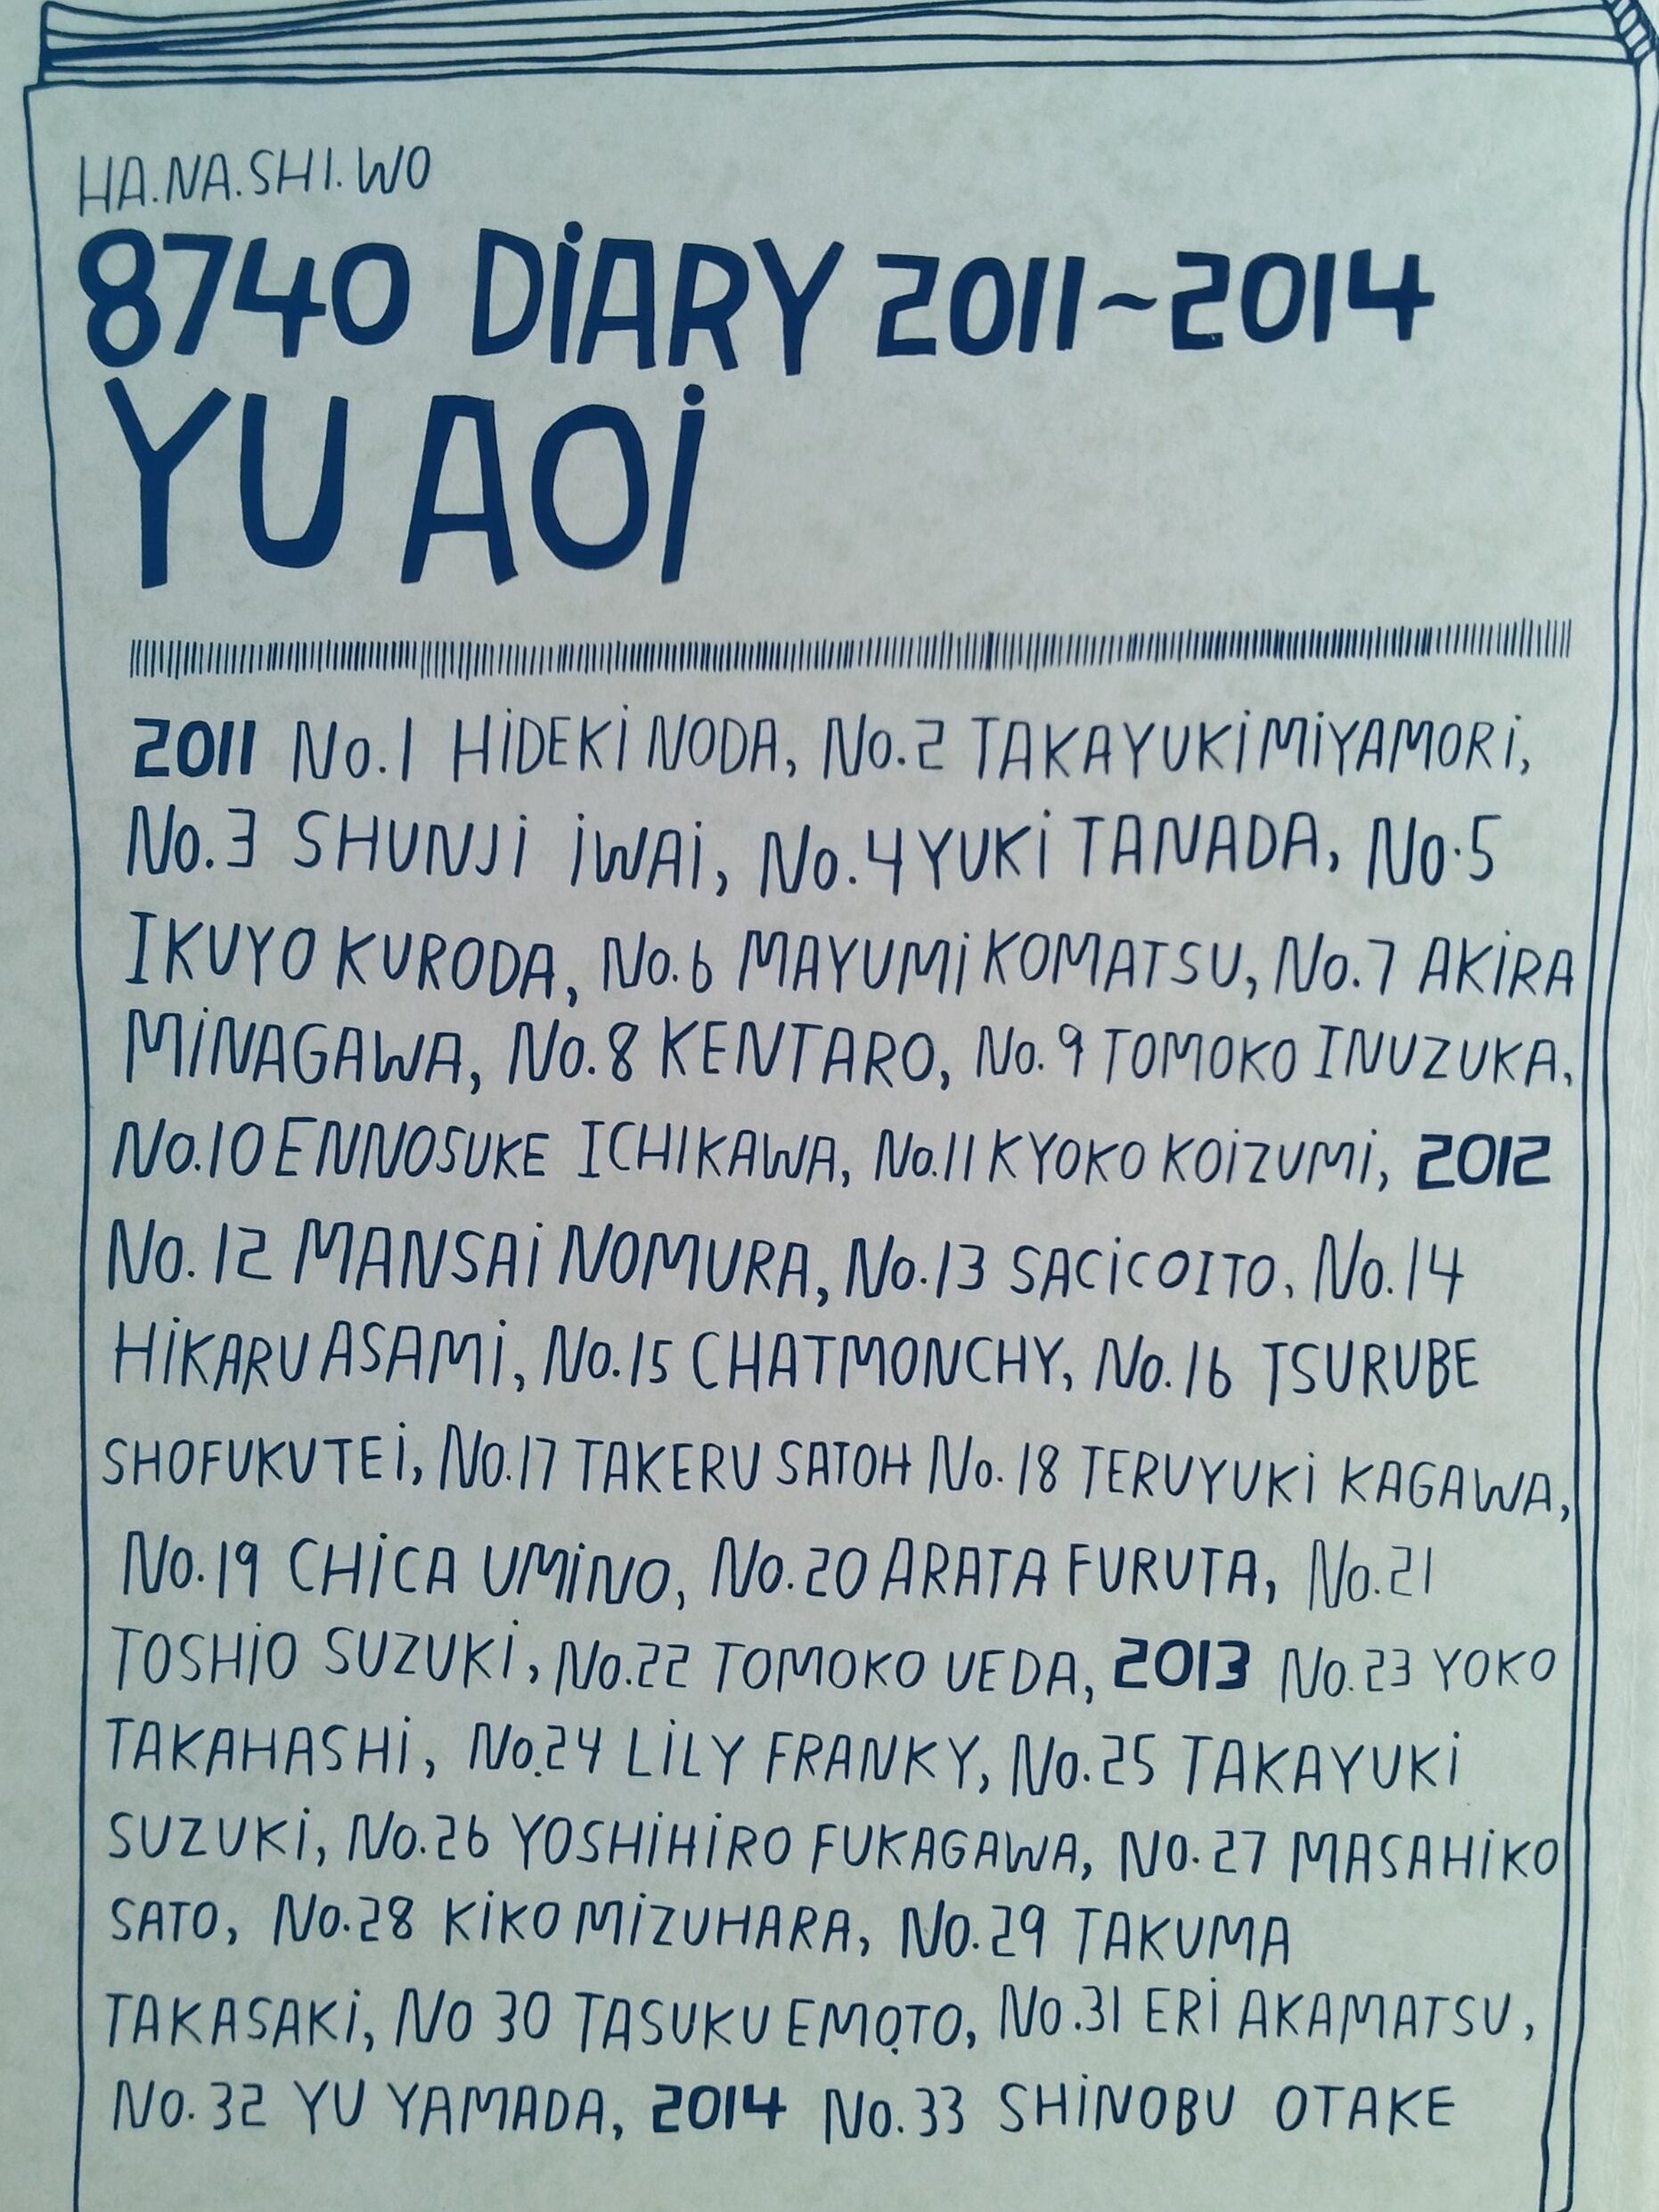 HA.NA.SHI.WO
8740 DiARY 2011~2014
YU AOi
2011 No.1 HiDEKi NODA, No.2 TAKAYUKi MiYAMORi,
No.3 SHUNJi iWAi, No.4 YUKi TANADA, No.5
IKUYO KURODA, No.6 MAYUMi KOMATSU, No.7 AKiRA
MiNAGAWA, No.8 KENTARO, No.9 TOMOKO INUZUKA,
No.10 ENNOSUKE ICHIKAWA, No.11 KYOKO KOiZUMi, 2012
No.12 MANSAi NOMURA, No.13 SACiCO ITO, No.14
HiKARU ASAMi, No.15 CHATMONCHY, No.16 TSURUBE
SHOFUKUTEi, No.17 TAKERU SATOH No.18 TERUYUKi KAGAWA,
No.19 CHiCA UMiNO, No.20 ARATA FURUTA, No.21
TOSHiO SUZUKi, No.22 TOMOKO UEDA, 2013 No.23 YOKO
TAKAHASHi, No.24 LiLY FRANKY, No.25 TAKAYUKi
SUZUKi, No.26 YOSHiHiRO FUKAGAWA, No.27 MASAHiKO
SATO, No.28 KiKO MiZUHARA, No.29 TAKUMA
TAKASAKi, No 30 TASUKU EMOTO, No.31 ERi AKAMATSU,
No.32 YU YAMADA, 2014 No.33 SHiNOBU OTAKE